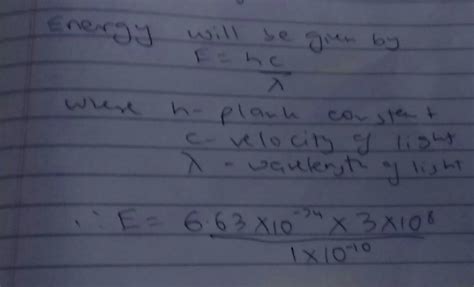 Energy will be given by
E = hc
λ
where h - plank constant
c - velocity of light
λ - wavelength of light
∴ E = 6.63 × 10⁻³⁴ × 3 × 10⁸
1 × 10⁻¹⁰